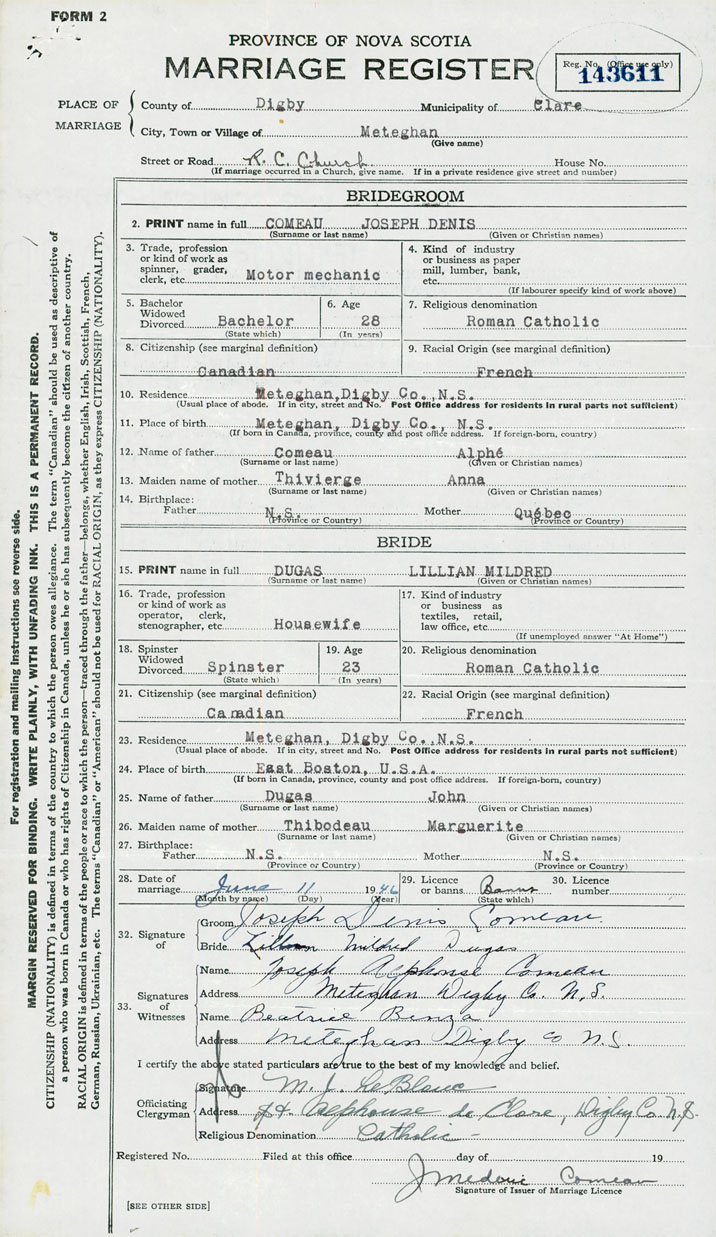 FORM 2
PROVINCE OF NOVA SCOTIA
MARRIAGE REGISTER
Reg. No. (Office use only)
143611
PLACE OF MARRIAGE
County of Digby Municipality of Clare
City, Town or Village of Meteghan
(Give name)
Street or Road R. C. Church House No.
(If marriage occurred in a Church, give name. If in a private residence give street and number)
BRIDEGROOM
2. PRINT name in full COMEAU JOSEPH DENIS
(Surname or last name) (Given or Christian names)
3. Trade, profession or kind of work as spinner, grader, clerk, etc. Motor mechanic
4. Kind of industry or business as paper mill, lumber, bank, etc.
(If labourer specify kind of work above)
5. Bachelor Widowed Divorced Bachelor
(State which)
6. Age 28
(In years)
7. Religious denomination
Roman Catholic
8. Citizenship (see marginal definition)
Canadian
9. Racial Origin (see marginal definition)
French
10. Residence Meteghan, Digby Co., N.S.
(Usual place of abode. If in city, street and No. Post Office address for residents in rural parts not sufficient)
11. Place of birth Meteghan, Digby Co., N.S.
(If born in Canada, province, county and post office address. If foreign-born, country)
12. Name of father Comeau Alphé
(Surname or last name) (Given or Christian names)
13. Maiden name of mother Thivierge Anna
(Surname or last name) (Given or Christian names)
14. Birthplace:
Father N.S. Mother Québec
(Province or Country) (Province or Country)
BRIDE
15. PRINT name in full DUGAS LILLIAN MILDRED
(Surname or last name) (Given or Christian names)
16. Trade, profession or kind of work as operator, clerk, stenographer, etc Housewife
17. Kind of industry or business as textiles, retail, law office, etc.
(If unemployed answer "At Home")
18. Spinster Widowed Divorced Spinster
(State which)
19. Age 23
(In years)
20. Religious denomination
Roman Catholic
21. Citizenship (see marginal definition)
Canadian
22. Racial Origin (see marginal definition)
French
23. Residence Meteghan, Digby Co., N.S.
(Usual place of abode. If in city, street and No. Post Office address for residents in rural parts not sufficient)
24. Place of birth East Boston, U.S.A.
(If born in Canada, province, county and post office address. If foreign-born, country)
25. Name of father Dugas John
(Surname or last name) (Given or Christian names)
26. Maiden name of mother Thibodeau Marguerite
(Surname or last name) (Given or Christian names)
27. Birthplace:
Father N.S. Mother N.S.
(Province or Country) (Province or Country)
28. Date of marriage June 11 1946
(Month by name) (Day) (Year)
29. Licence or banns Banns
(State which)
30. Licence number
32. Signature of
Groom Joseph Denis Comeau
Bride Lillian Mildred Dugas
33. Signatures of Witnesses
Name Joseph Alphonse Comeau
Address Meteghan Digby Co. N.S.
Name Beatrice
Address Meteghan Digby Co N.S.
I certify the above stated particulars are true to the best of my knowledge and belief.
Officiating Clergyman
Signature M. J. LeBlanc
Address Alphonse de Clare, Digby Co. N.S.
Religious Denomination Catholic
Registered No. Filed at this office day of 19
J Mederic Comeau
Signature of Issuer of Marriage Licence
[SEE OTHER SIDE]
For registration and mailing instructions see reverse side.
MARGIN RESERVED FOR BINDING. WRITE PLAINLY, WITH UNFADING INK. THIS IS A PERMANENT RECORD.
CITIZENSHIP (NATIONALITY) is defined in terms of the country to which the person owes allegiance. The term "Canadian" should be used as descriptive of
a person who was born in Canada or who has rights of Citizenship in Canada, unless he or she has subsequently become the citizen of another country.
RACIAL ORIGIN is defined in terms of the people or race to which the person—traced through the father—belongs, whether English, Irish, Scottish, French,
German, Russian, Ukrainian, etc. The terms "Canadian" or "American" should not be used for RACIAL ORIGIN, as they express CITIZENSHIP (NATIONALITY).